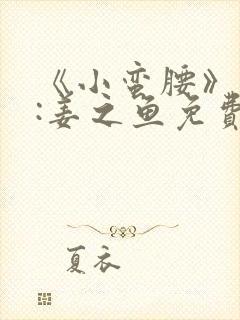 《小蛮腰》
:姜之鱼免費
夏衣